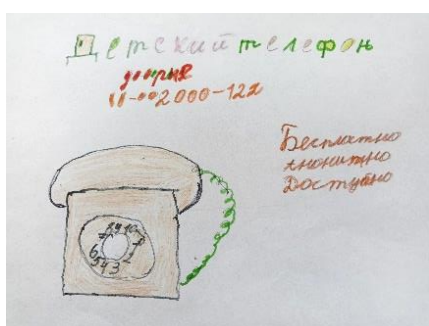 Детский телефон
доверия
2000-122
Бесплатно
Анонимно
Доступно
6543